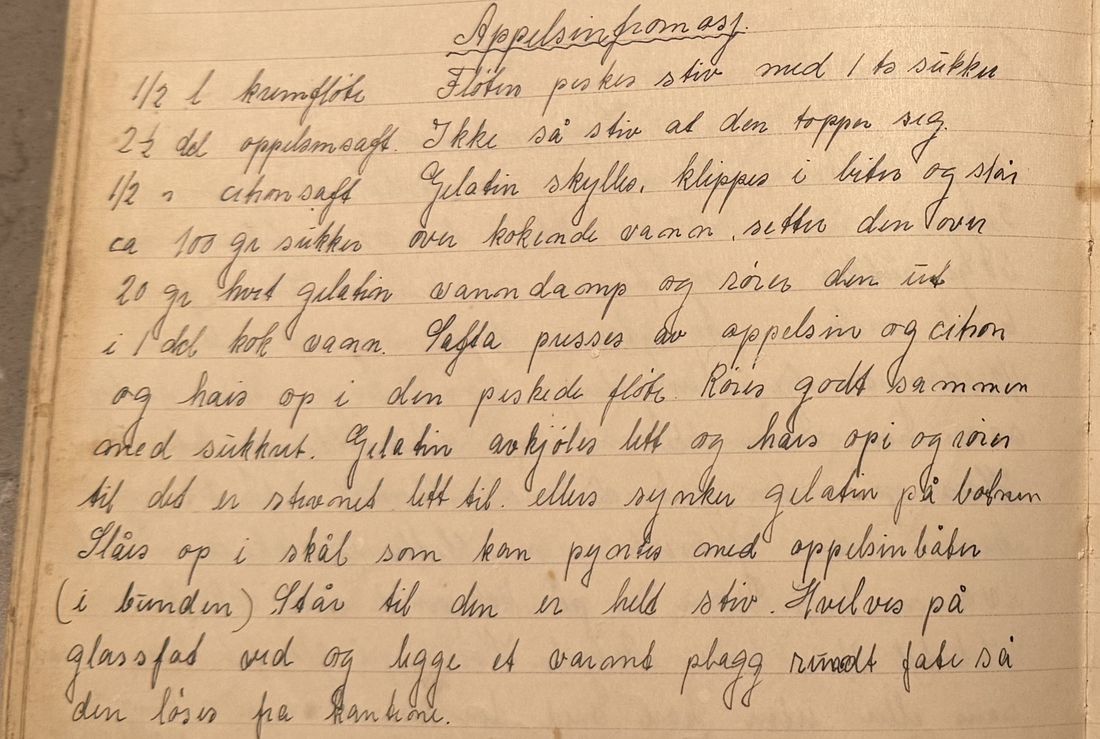 Appelsinfromasj.
1/2 l kremfløte Fløten piskes stiv med 1 ts sukker
2 1/2 del appelsinsaft. Ikke så stiv at den topper seg.
1/2 " citronsaft Gelatin skylles, klippes i biter og slår
ca 100 gr sukker over kokende vann, setter den over
20 gr hvit gelatin vanndamp og rører den ut
i 1 del kok vann. Safta presses av appelsin og citron
og haes op i den piskede fløte. Røres godt sammen
med sukkret. Gelatin avkjøles litt og haes opi og rører
til det er stivnet litt til. ellers synker gelatin på botnen
Slåes op i skål som kan pyntes med appelsinbåter
(i bunden) Står til den er helt stiv. Hvelves på
glassfat ved og legge et varmt plagg rundt fate så
den løses fra kantene.